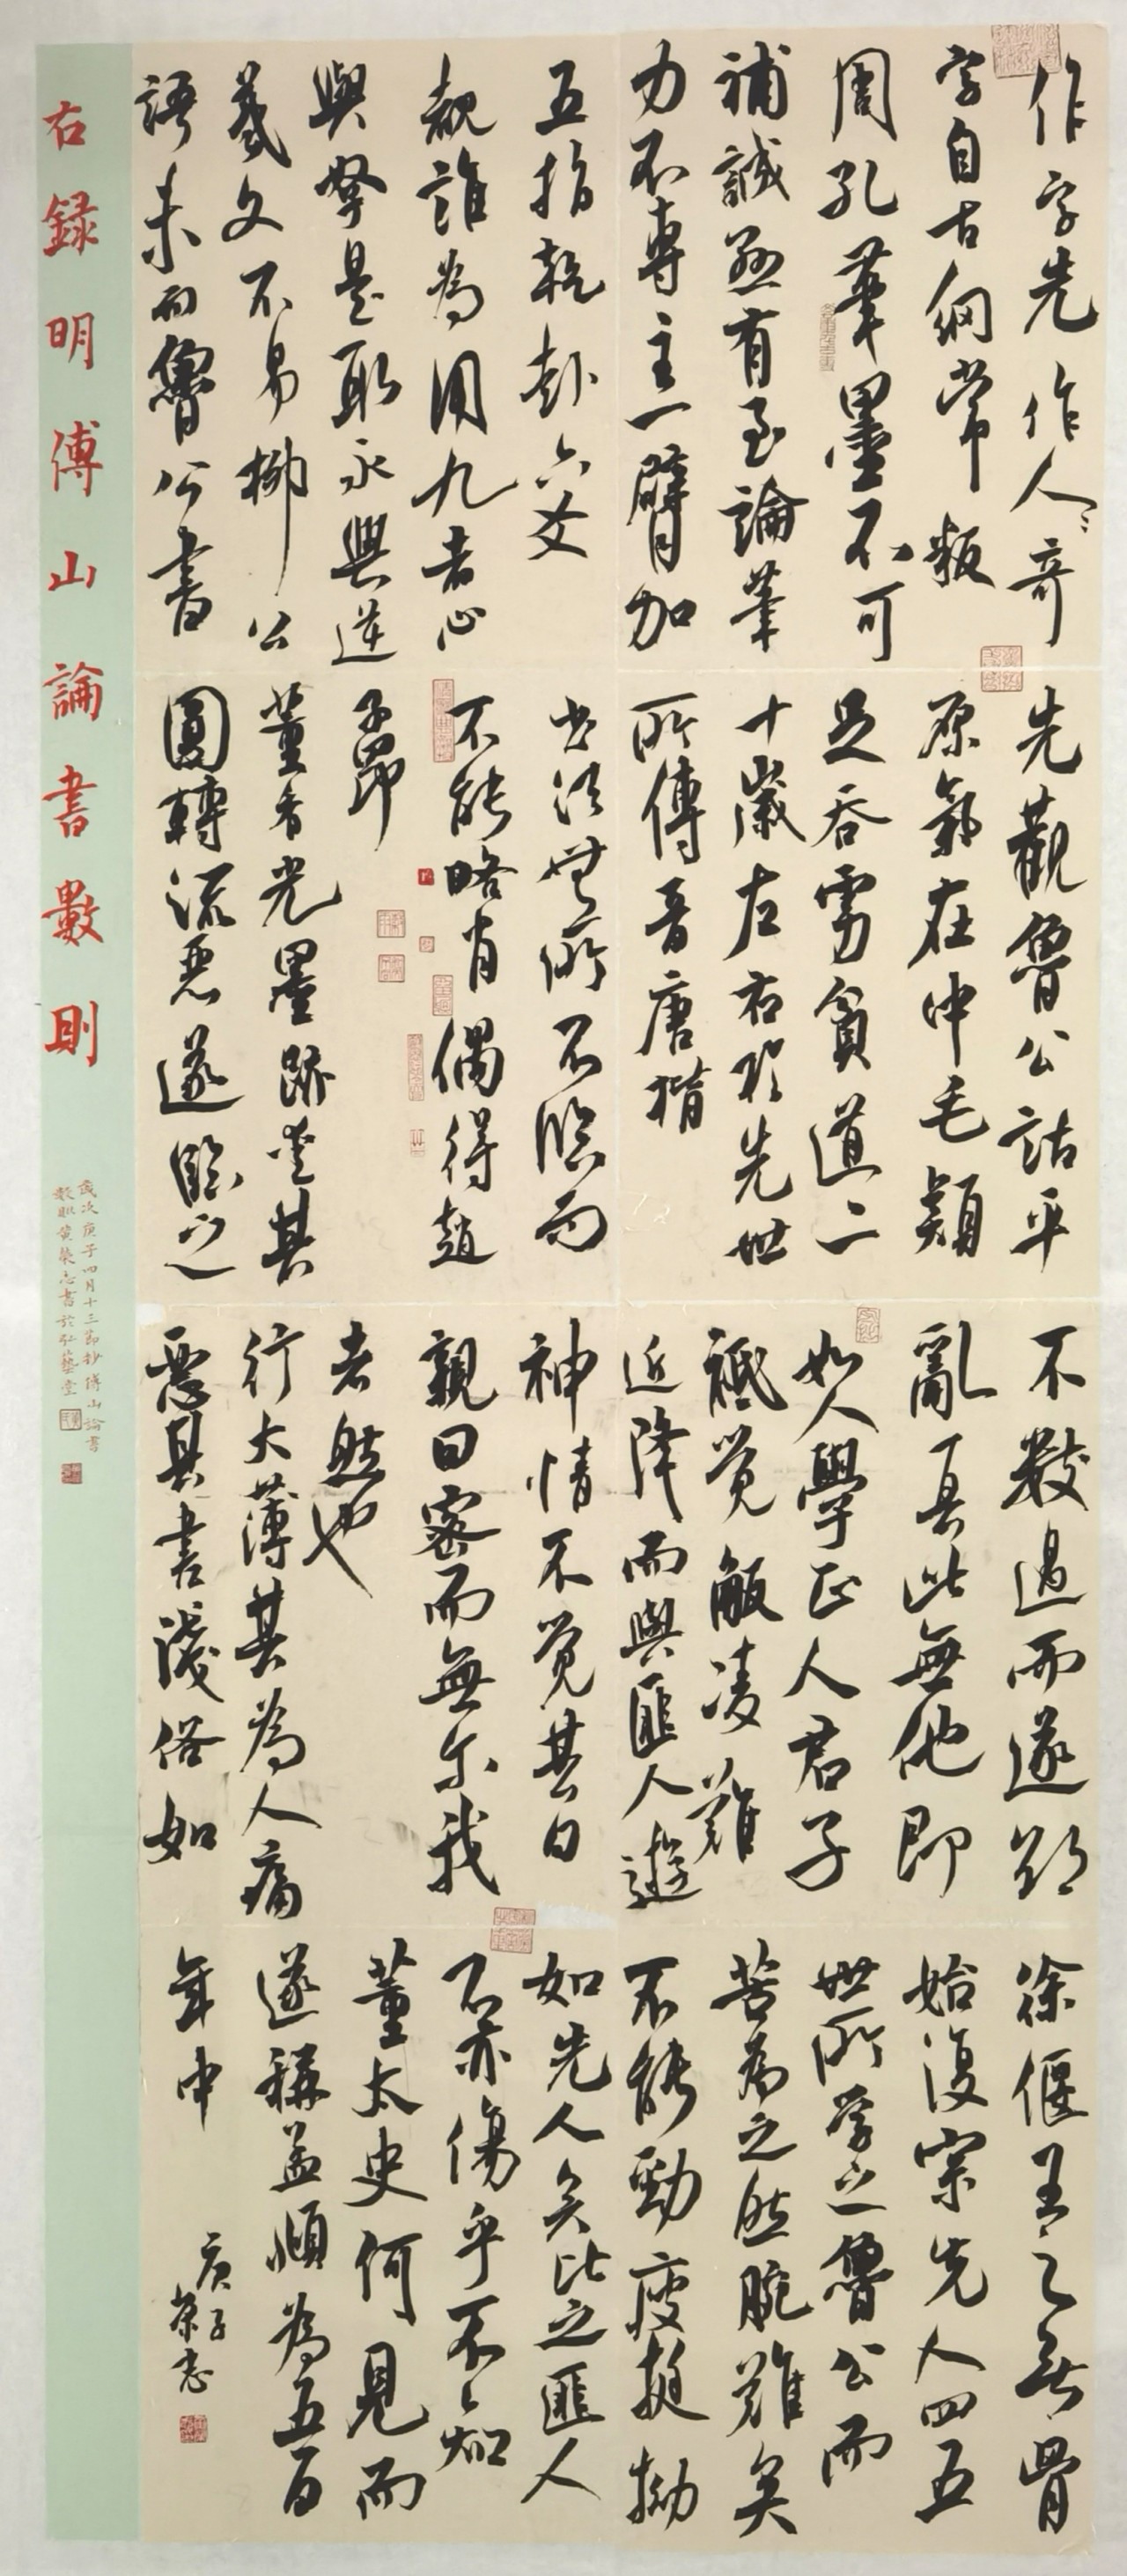 作字先作人〻奇
字自古綱常叛
周孔筆墨不可
補誠懸有至論筆
力不專主一臂加
五指乾卦六爻
覩誰為用九者心
與擘是取永興逆
羲文不易柳公
語未習魯公書
先觀魯公詁平
原氣在中毛穎
足吞虜貪道二
十歲左右於先世
所傳晉唐楷
書法無所不臨而
不能略肖偶得趙
子昂
董香光墨跡愛其
圓轉流麗遂臨之
不數過而遂欲
亂真此無他即
如人學正人君子
祗覺觚稜難
近降而與匪人遊
神情不覺其日
親日密而無爾我
者然也
行大薄其為人痛
惡其書淺俗如
徐偃王之無骨
始復宗先人四五
世所學之魯公而
苦為之然腕雜矣
不能勁瘦挺拗
如先人矣比之匪人
不亦傷乎不知
董太史何見而
遂稱孟頫為五百
年中
庚子
榮志
右録明傅山論書數則
歲次庚子四月十三節抄傅山論書
數則黄榮志書於弘藝堂